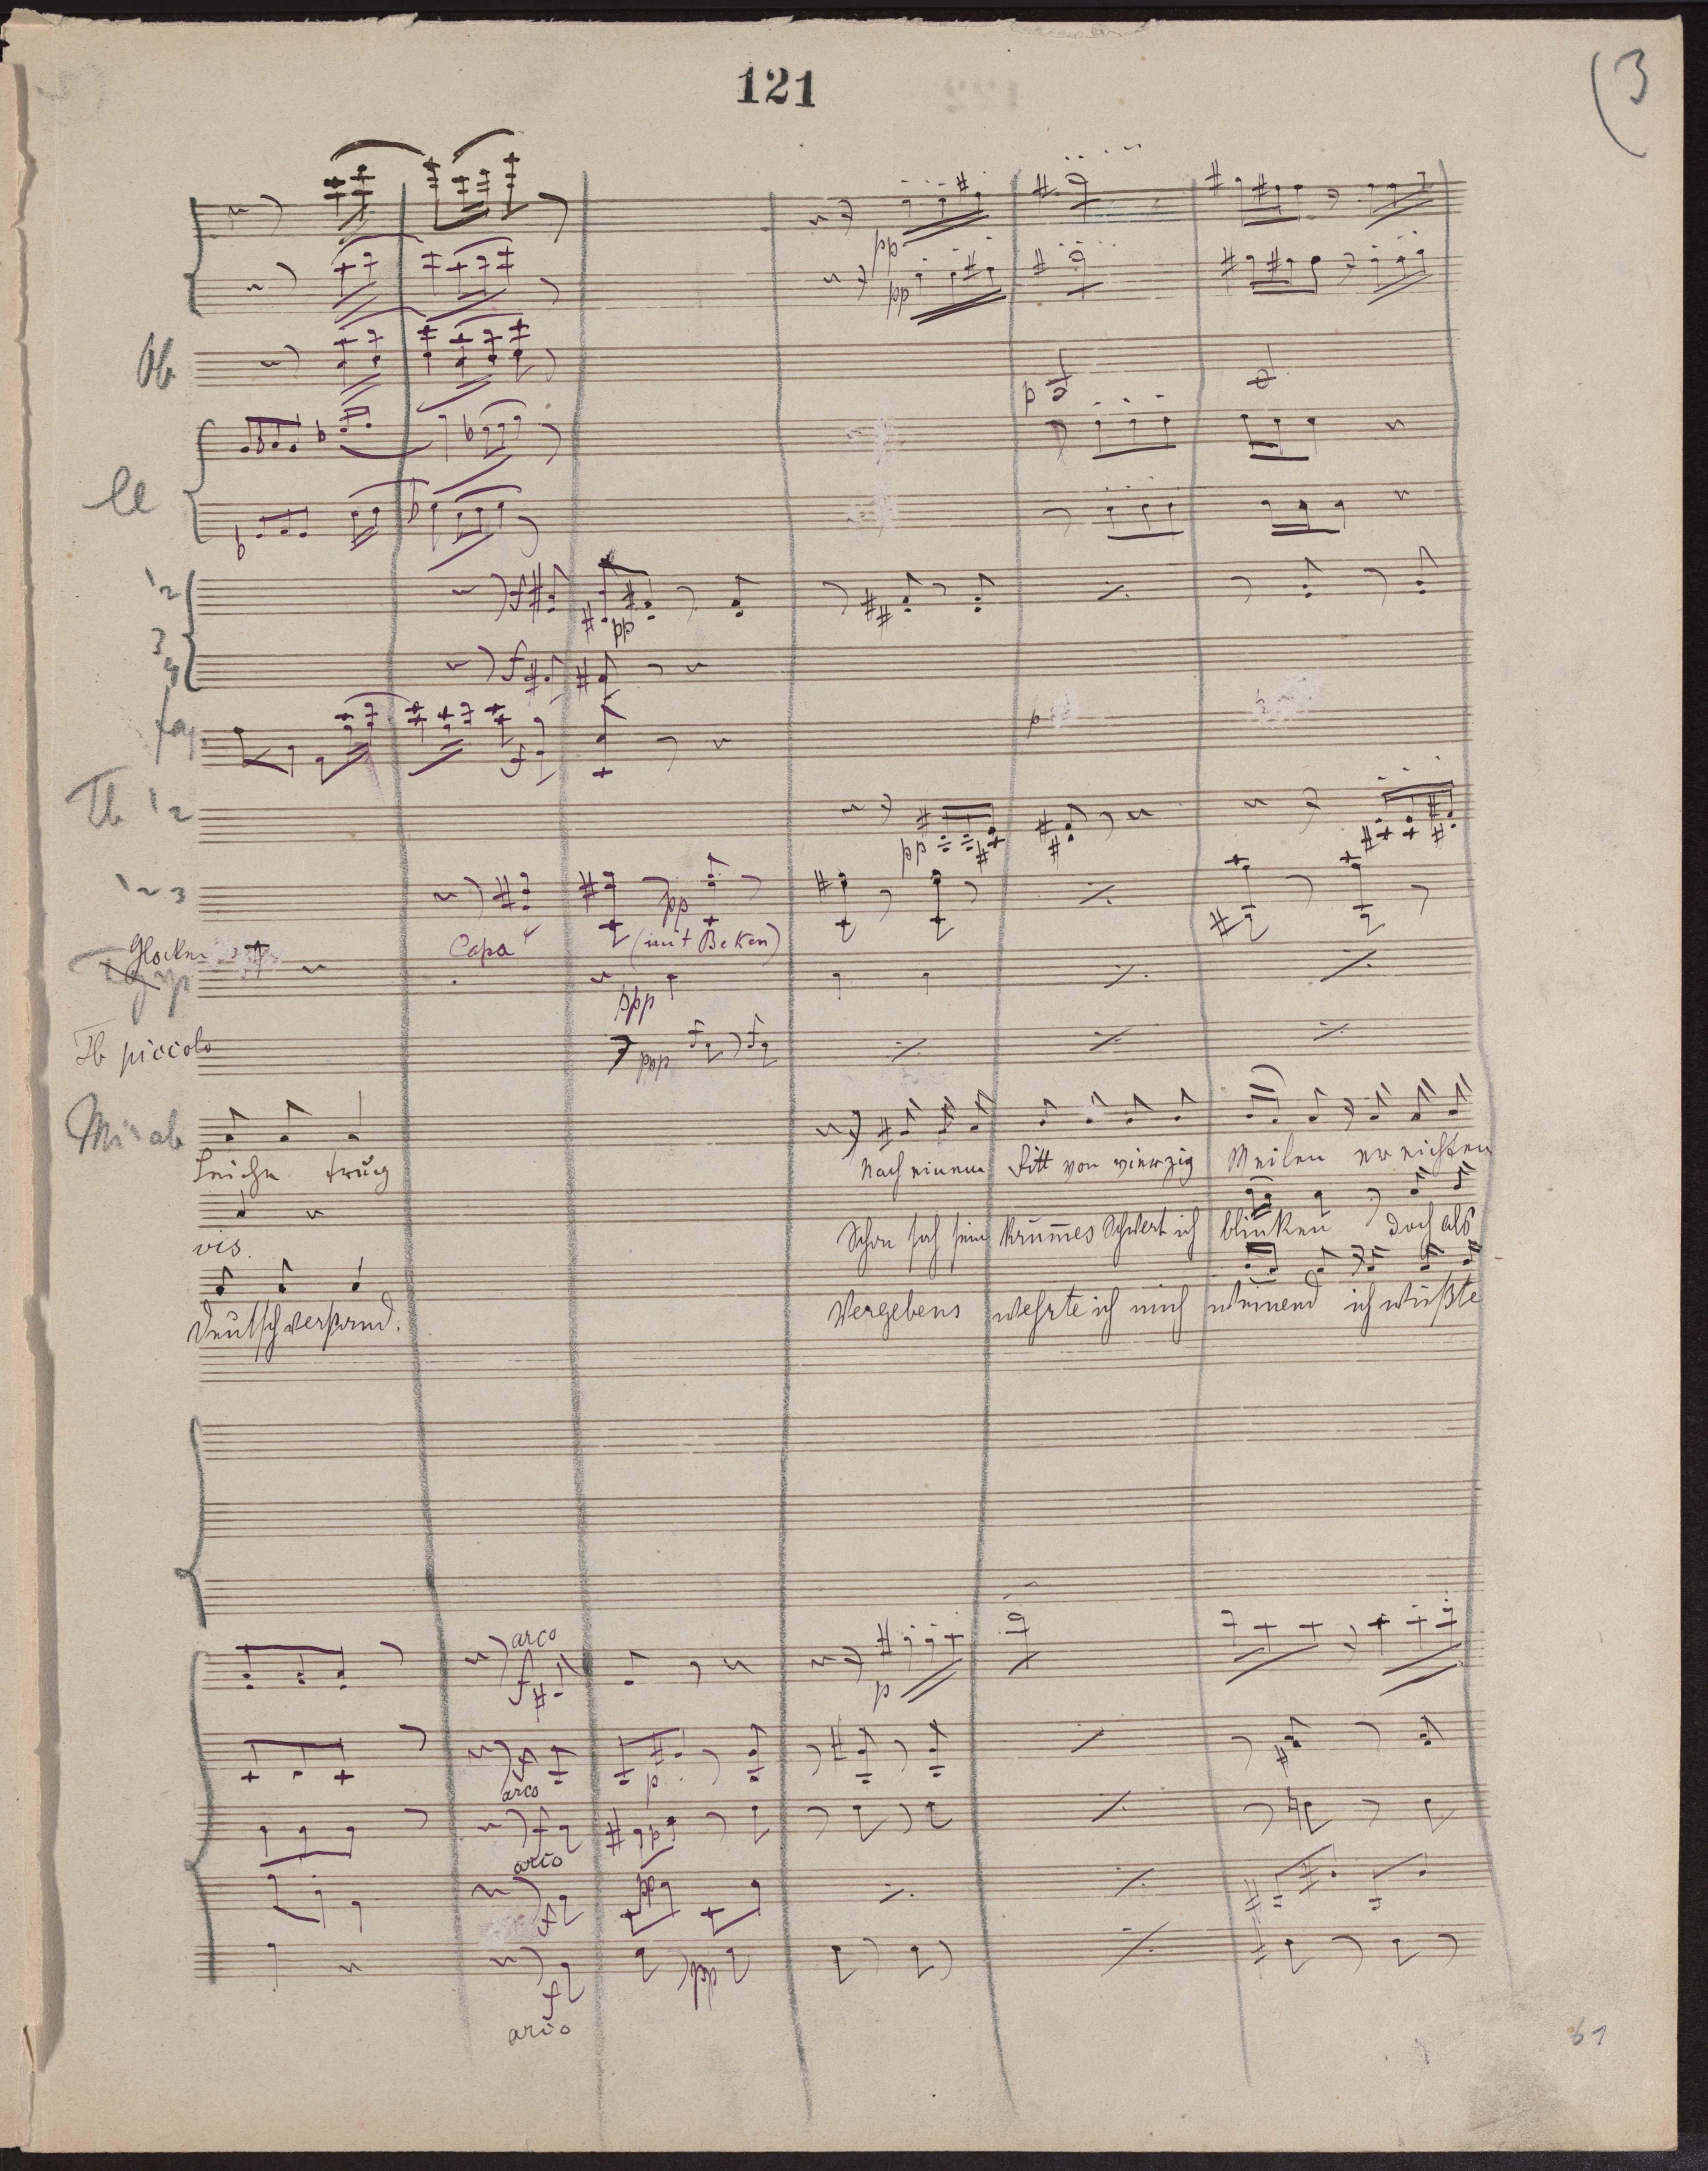 121
3
pp
pp
Ob
p
Cl
1 2
f
pp
3 4
f
Fag.
f
p
Tb 1 2
pp
1 2 3
pp
Capa
(mit Beken)
Glocken
ppp
Tb piccolo
ppp
f
f
Mirab
Leiche trug
Nach einem Ritt von vierzig Meilen erreichten
vis.
Schon sah sein krum̄es Schwert ich blinken doch als
Deutsch verstand.
Vergebens wehrte ich mich weinend ich wüßte
arco
f
p
f
arco
p
f
arco
pp
f
pp
f
arco
61